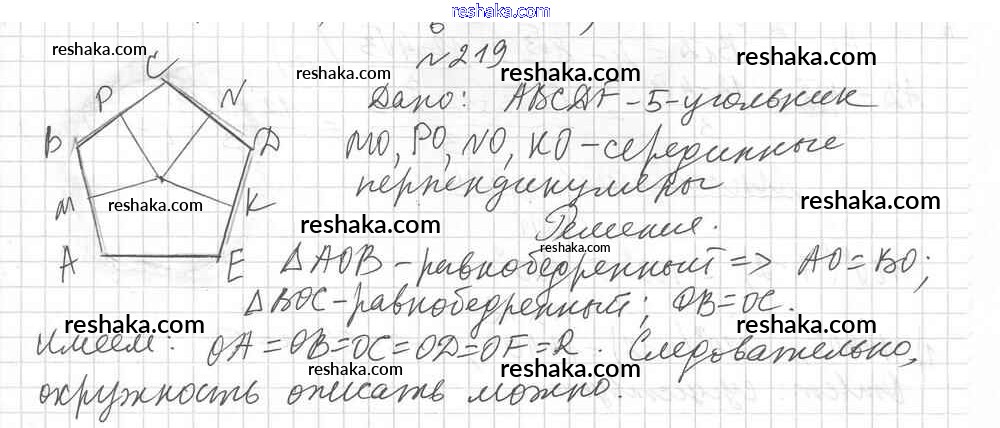 reshaka.com
№219
reshaka.com reshaka.com reshaka.com reshaka.com
C
P N
B D
M K
A E
Дано: ABCDF - 5-угольник
reshaka.com
MO, PO, NO, KO - серединные
перпендикуляры
reshaka.com reshaka.com reshaka.com
Решения.
reshaka.com
△AOB - равнобедренный => AO = BO;
△BOC - равнобедренный; OB = OC.
reshaka.com reshaka.com reshaka.com
Имеем: OA = OB = OC = OD = OF = R. Следовательно,
reshaka.com reshaka.com reshaka.com
окружность описать можно.